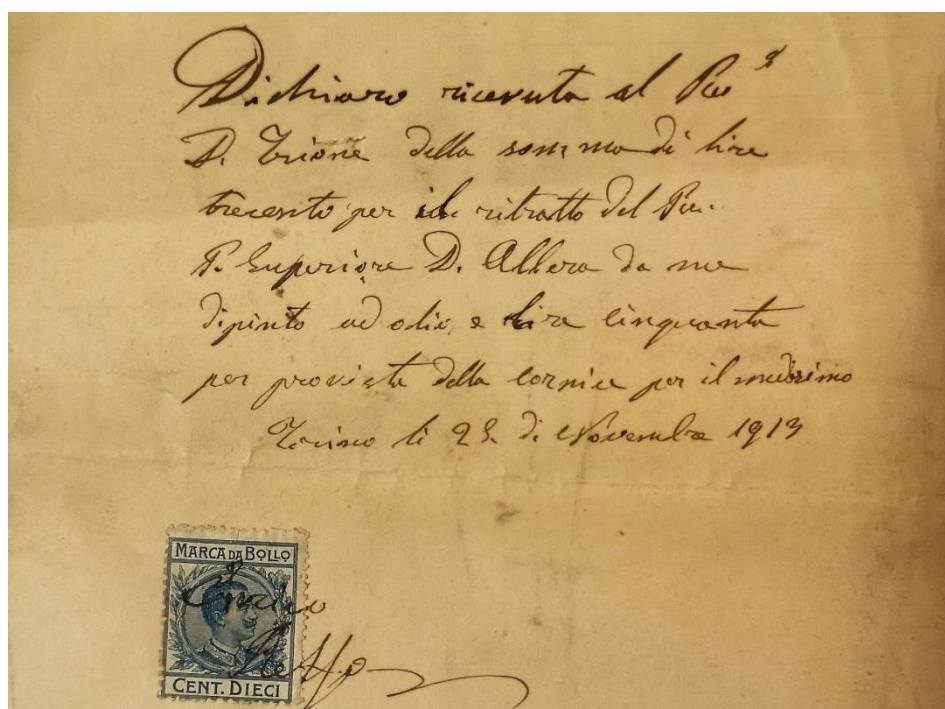 Dichiaro ricevuta al Rev
D. Trione della somma di lire
trecento per il ritratto del Rev.
P. Superiore D. Allera da me
dipinto ad olio, e lire cinquanta
per provista della cornice per il medesimo
Torino li di Novembre 1913
MARCA DA BOLLO
CENT. DIECI